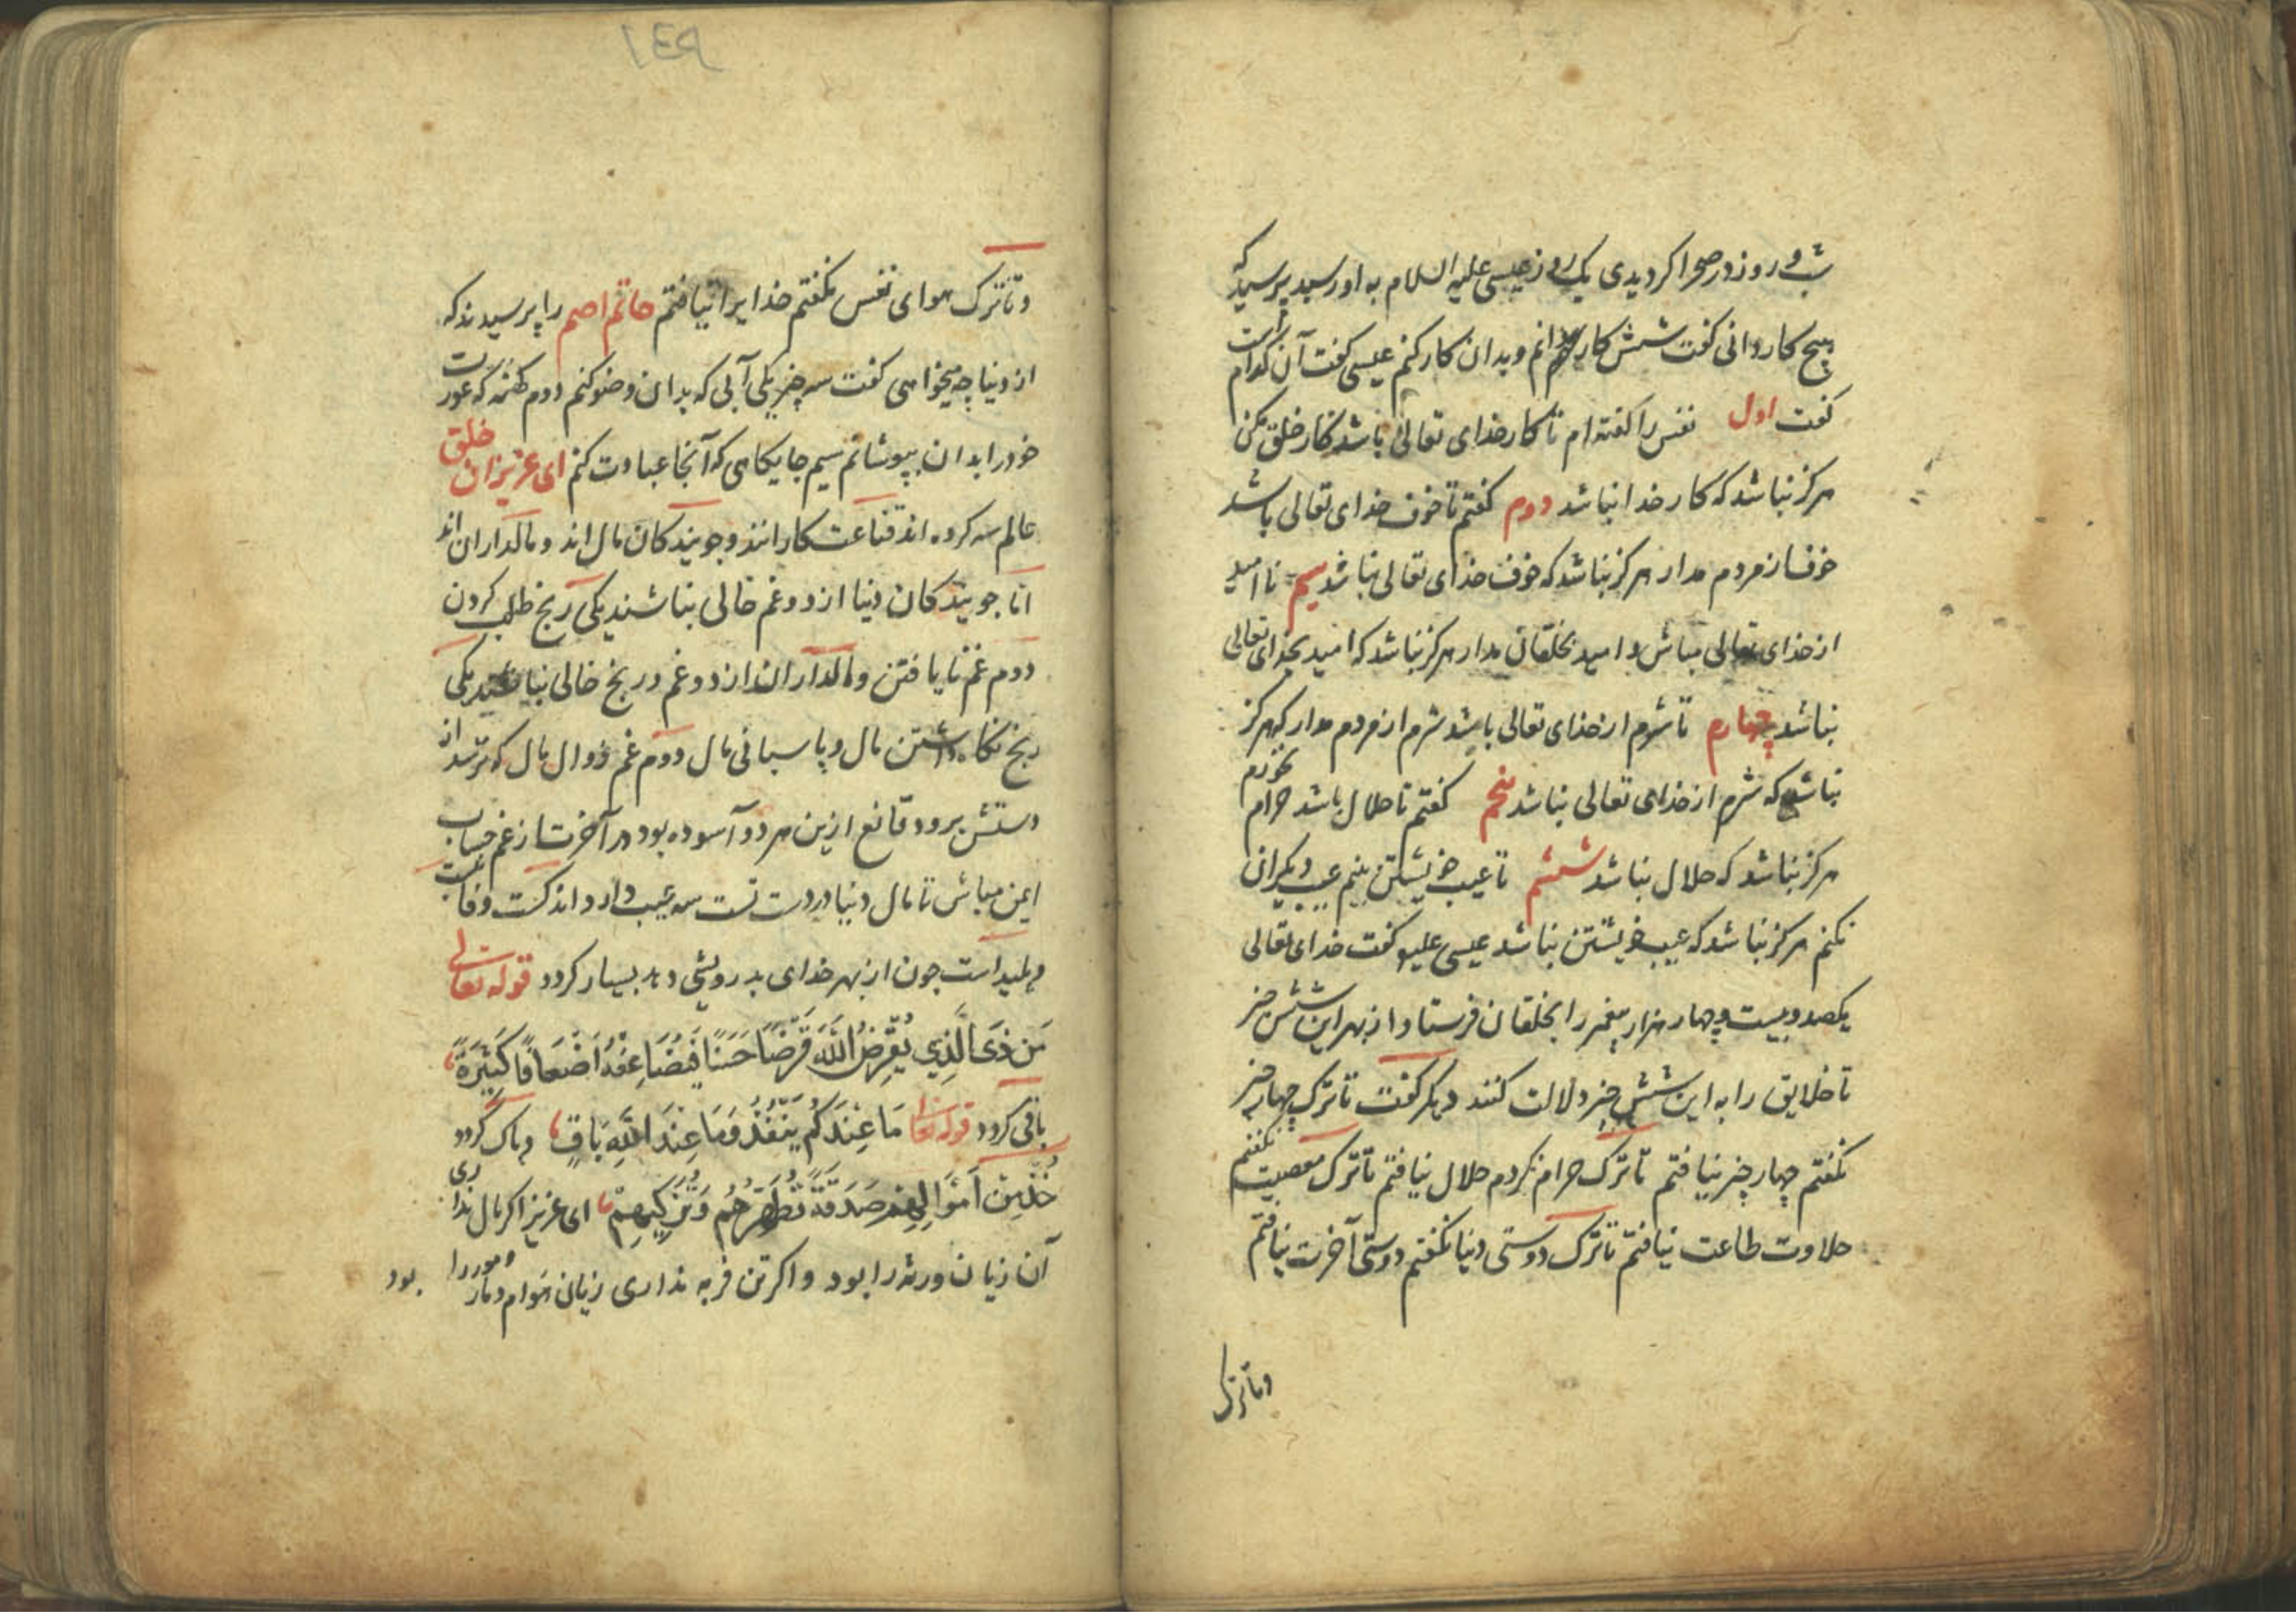 شب و روز در صحرا کردیدی یک روز عیسی علیه السلام به او رسید پرسید که
هیچ کار دانی کفت شش کار دانم و بدان کار کنم عیسی کفت آن کدام است
کفت اول نفس را کفته ام تا کار خدای تعالی باشد کار خلق مکن
هرکز نباشد که کار خدا نباشد دوم کفتم تا خوف خدای تعالی باشد
خوف از مردم مدار هرکز نباشد که خوف خدای تعالی نباشد سیم نا امید
از خدای تعالی مباش و امید بخلقان مدار هرکز نباشد که امید بخدای تعالی
نباشد چهارم تا شرم از خدای تعالی باشد شرم از مردم مدار که هرکز
نباشد که شرم از خدای تعالی نباشد پنجم کفتم تا حلال باشد حرام نخورم
هرکز نباشد که حلال نباشد ششم تا عیب خویشتن بینم عیب دیکران
نکنم هرکز نباشد که عیب خویشتن نباشد عیسی علیه کفت خدای تعالی
یکصد و بیست و چهار هزار پیغمبر را بخلقان فرستاد از بهر این شش چیز
تا خلایق را به این شش چیز دلالت کنند دیکر کفت تا ترک چهار چیز
نکفتم چهار چیز نیافتم تا ترک حرام نکردم حلال نیافتم تا ترک معصیت نکفتم
حلاوت طاعت نیافتم تا ترک دوستی دنیا نکفتم دوستی آخرت نیافتم
و تا ترک
و تا ترک هوای نفس نکفتم خدایرا نیافتم حاتم اصم را پرسیدند که
از دنیا چه میخواهی کفت سه چیز یکی آبی که بدان وضو کنم دوم کهنه که عورت
خود را بدان بپوشانم سیم جایکاهی که آنجا عبادت کنم ای عزیز این خلق
عالم سه کروه اند قناعت کارانند و جویندکان مال اند و مالداران اند
اما جویندکان دنیا از دو غم خالی نباشند یکی رنج طلب کردن
دوم غم نایافتن و مالداران از دو غم و رنج خالی نباشند یکی
رنج نکاه داشتن مال و پاسبانی مال دوم غم زوال مال که ترسد از
دستش برود قانع ازین هر دو آسوده بود در آخرت از غم حساب
ایمن مباش تا مال دنیا در دست تست سه عیب دارد اندکست و فانیست
و پلید است چون از بهر خدای بدرویشی دهد بسیار کردد قوله تعالی
مَن ذَی الَّذِي يُقْرِضُ اللّٰهَ قَرْضًا حَسَنًا فَيُضَاعِفْهُ اَضْعَافًا كَثِيرَةً
باقی کردد قوله تعالی مَا عِنْدَكُمْ يَنْفَدُ وَمَا عِنْدَ اللّٰهِ بَاقٍ و پاک کردد
خُذْ مِنْ اَمْوَالِهِمْ صَدَقَةً تُطَهِّرُهُمْ وَتُزَكِّيهِمْ ای عزیز اکر مال نداری
آن زیان ورثه را بود و اکر تن فربه نداری زیان هوام و مار و مور را بود